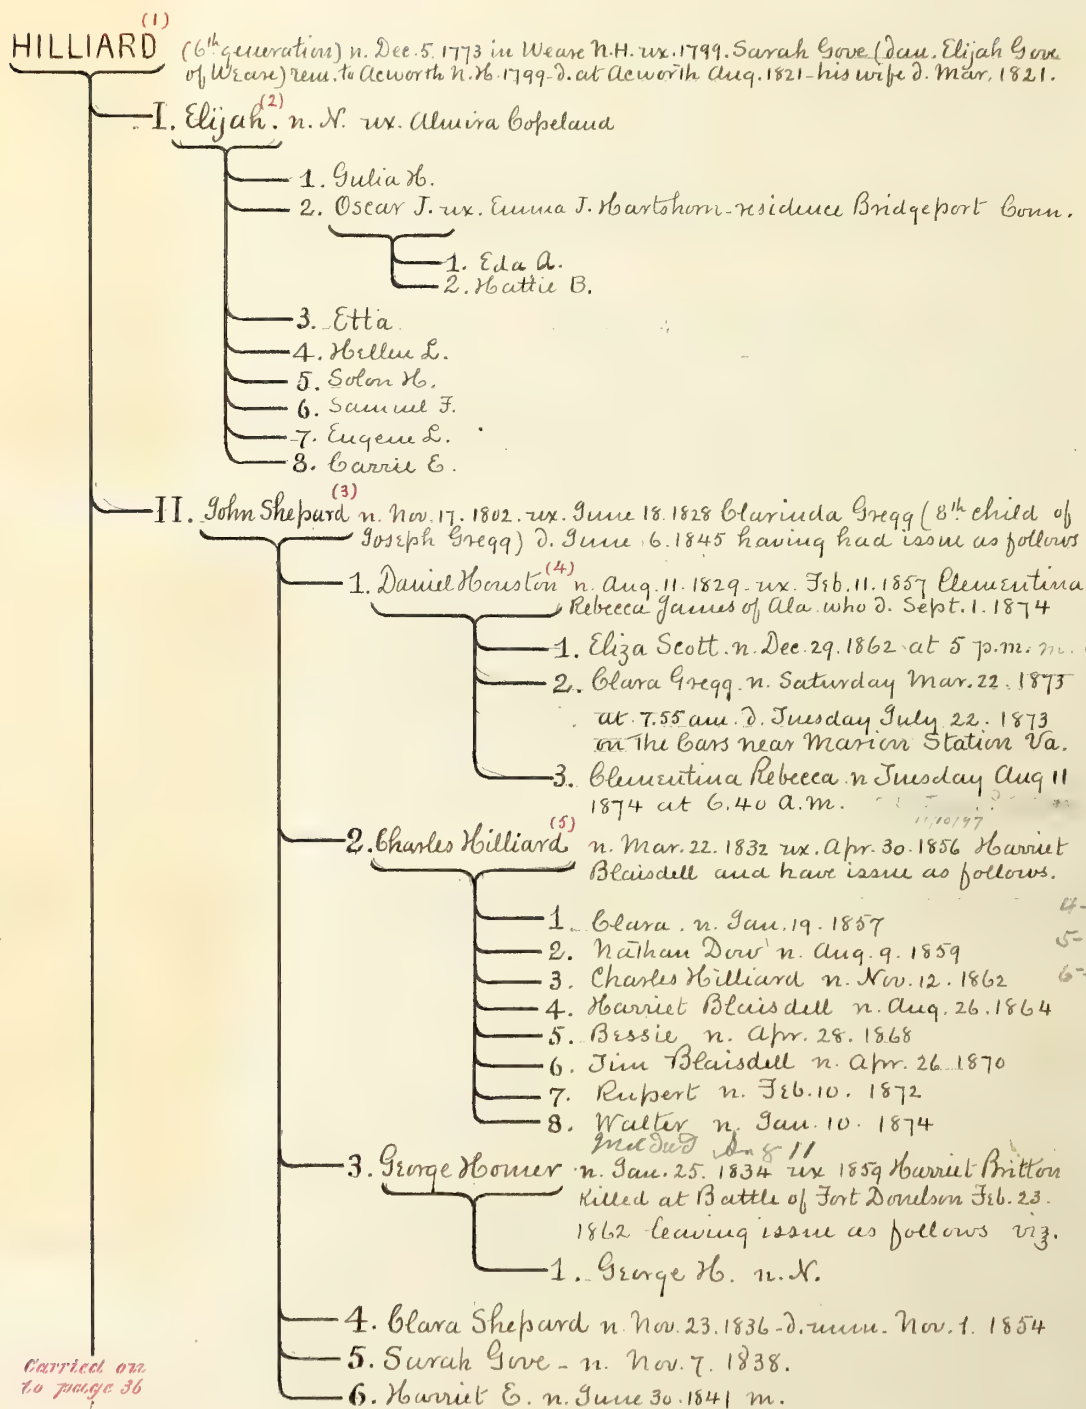 (1)
HILLIARD (6th generation) n. Dec. 5. 1773 in Weare N.H. ux. 1799. Sarah Gove (dau. Elijah Gove
of Weare) rem. to Acworth N.H. 1799 - d. at Acworth Aug. 1821 - his wife d. Mar. 1821.
I. Elijah. (2) n. N. ux. Almira Copeland
1. Julia H.
2. Oscar J. ux. Emma J. Hartshorn - residence Bridgeport Conn.
1. Eda A.
2. Hattie B.
3. Etta
4. Hellen L.
5. Solon H.
6. Samuel F.
7. Eugene L.
8. Carrie E.
II. John Shepard (3) n. Nov. 17. 1802. ux. June 18. 1828 Clarinda Gregg (8th child of
Joseph Gregg) d. June 6. 1845 having had issue as follows
1. Daniel Houston (4) n. Aug. 11. 1829 - ux. Feb. 11. 1857 Clementina
Rebecca James of Ala. who d. Sept. 1. 1874
1. Eliza Scott. n. Dec. 29. 1862 at 5 p.m. m.
2. Clara Gregg. n. Saturday Mar. 22. 1873
at 7.55 am. d. Tuesday July 22. 1873
on the Cars near Marion Station Va.
3. Clementina Rebecca. n Tuesday Aug 11
1874 at 6.40 A.M.
11/10/97
2. Charles Hilliard (5) n. Mar. 22. 1832 ux. Apr. 30. 1856 Harriet
Blaisdell and have issue as follows.
1. Clara. n. Jan. 19. 1857
4-
2. Nathan Dow n. Aug. 9. 1859
5-
3. Charles Hilliard n. Nov. 12. 1862
6-
4. Harriet Blaisdell n. Aug. 26. 1864
5. Bessie n. Apr. 28. 1868
6. Jim Blaisdell n. Apr. 26 1870
7. Rupert n. Feb. 10. 1872
8. Walter n. Jan. 10. 1874
3. George Homer n. Jan. 25. 1834 ux 1859 Harriet Britton
Killed at Battle of Fort Donelson Feb. 23.
1862 leaving issue as follows viz.
1. George H. n. N.
4. Clara Shepard n. Nov. 23. 1836 - d. unm. Nov. 1. 1854
5. Sarah Gove - n. Nov. 7. 1838.
6. Harriet E. n. June 30. 1841 m.
Carried on
to page 36